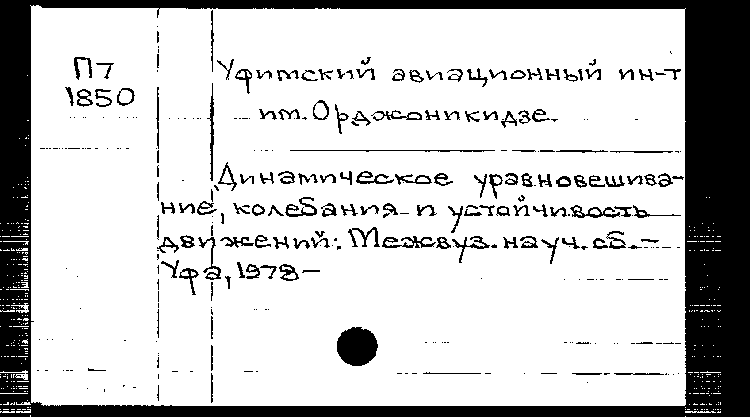 П7
1850
Уфимский авиационный ин-т
им. Орджоникидзе.
Динамическое уравновешива-
ние, колебания и устойчивость
движений: Межвуз. науч. сб. –
Уфа, 1978 –